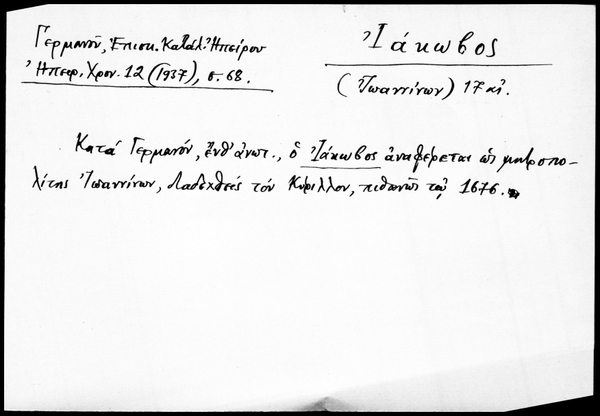 Γερμανοῦ, Ἐπισκ. Κατάλ. Ἠπείρου
Ἠπειρ. Χρον. 12 (1937), σ. 68.
Ἰάκωβος
(Ἰωαννίνων) 17 αἰ.
Κατά Γερμανόν, ἔνθ' ἀνωτ., ὁ Ἰάκωβος ἀναφέρεται ὡς μητροπο-
λίτης Ἰωαννίνων, διαδεχθείς τόν Κύριλλον, πιθανῶς τῷ 1676.